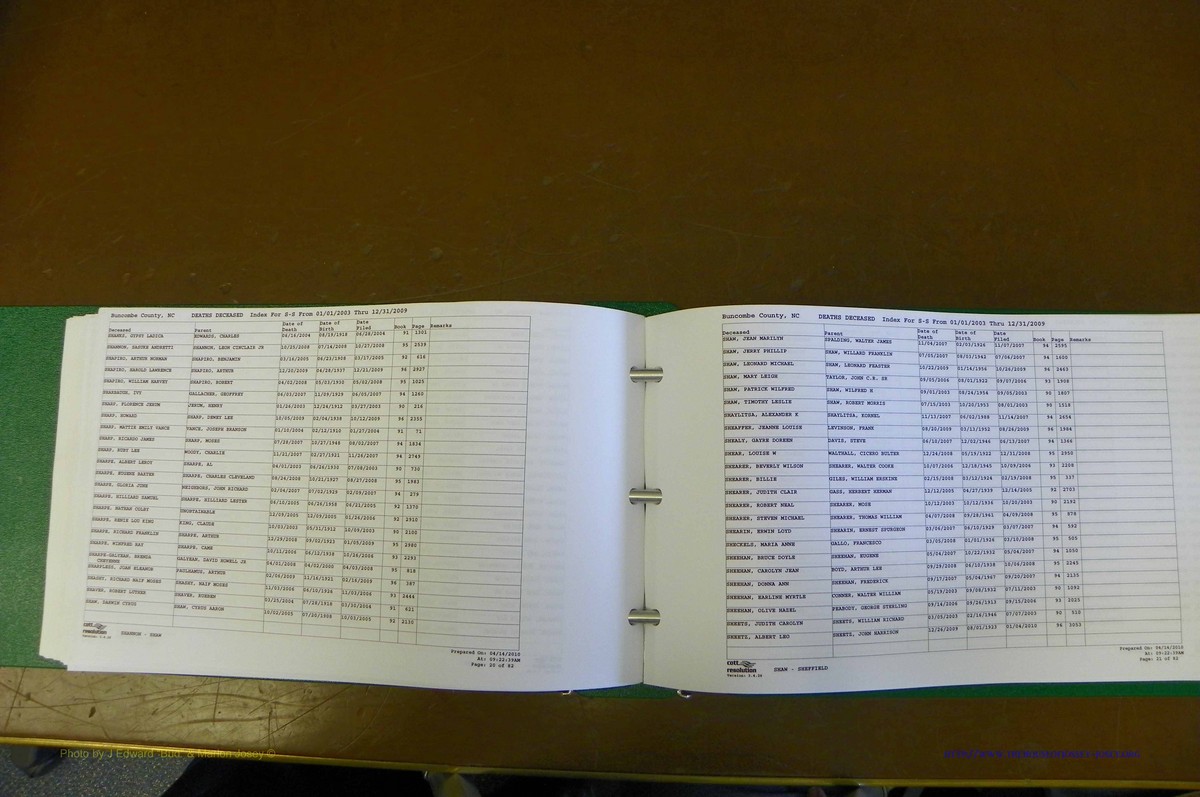 Buncombe County, NC DEATHS DECEASED Index For S-S From 01/01/2003 Thru 12/31/2009
Deceased Parent Date of Death Date of Birth Date Filed Book Page Remarks
SHANKS, GYPSY EDWARDS, CHARLES 91 1301
SHANNON, SHANNON, LEON SINCLAIR JR 10/25/2008 10/27/2008 95 2539
SHAPIRO, ARTHUR NORMAN SHAPIRO, BENJAMIN 03/16/2005 06/23/1908 03/17/2005 92 616
SHAPIRO, HAROLD LAWRENCE SHAPIRO, ARTHUR 12/20/2009 04/29/1937 12/21/2009 96 2827
SHAPIRO, WILLIAM HARVEY SHAPIRO, ROBERT 05/03/1930 05/02/2008 95 1025
SHARBAUGH, IVY GALLACHER, GEOFFREY 11/09/1929 94 1260
SHARP, FLORENCE JEXUM JEXUM, HENRY 12/24/1912 90 216
SHARP, HOWARD SHARP, DEWEY LEE 10/05/2009 02/04/1938 10/12/2009 96 2355
SHARP, MATTIE EMILY VANCE VANCE, JOSEPH BRANSON 01/10/2004 02/12/1910 01/27/2004 91 71
SHARP, RICARDO JAMES SHARP, MOSES 07/28/2007 12/27/1948 08/02/2007 94 1834
SHARP, RUBY LEE WOODY, CHARLIE 11/01/2007 02/27/1921 11/26/2007 94 2749
SHARPE, ALBERT LEROY SHARPE, AL 04/01/2003 04/26/1920 07/08/2003 90 730
SHARPE, EUGENE BAXTER SHARPE, CHARLES CLEVELAND 08/24/2008 10/21/1927 08/27/2008 95 1981
SHARPE, GLORIA JUNE NEIGHBORS, JOHN RICHARD 02/04/2007 07/02/1929 02/09/2007 94 279
SHARPE, HILLIARD SAMUEL SHARPE, HILLIARD LESTER 06/10/2005 06/21/2005 92 1370
SHARPE, NATHAN COLEY UNOBTAINABLE 12/09/2005 92 2910
SHARPE, RENIE LOU KING KING, CLAUDE 10/03/2003 05/01/1912 10/09/2003 90 2100
SHARPE, RICHARD FRANKLIN SHARPE, ARTHUR 12/29/2008 09/02/1923 01/05/2009 95 2980
SHARPE, WINFRED RAY SHARPE, CAME 10/11/2006 06/12/1938 93 2293
SHARPE-GALYEAN, BRENDA CHEYENNE GALYEAN, DAVID HOWELL JR 04/01/2008 04/02/2000 04/03/2008 95 818
SHARPLESS, JOAN ELEANOR PAULHAMUS, ARTHUR 02/09/2009 11/16/1921 02/16/2009 96 387
SHASHY, RICHARD NAIF MOSES SHASHY, NAIF MOSES 11/03/2006 08/10/1926 93 2444
SHAVER, ROBERT LUTHER SHAVER, 03/25/2004 07/28/1918 03/30/2004 91 621
SHAW, DARWIN CYRUS SHAW, CYRUS AARON 10/02/2005 07/20/1950 10/03/2005 92 2130
cott resolution
SHANNON - SHAW
Prepared On: 04/14/2010
At: 09:22:39AM
Page: 20 of 82
Buncombe County, NC DEATHS DECEASED Index For S-S From 01/01/2003 Thru 12/31/2009
Deceased Parent Date of Death Date of Birth Date Filed Book Page Remarks
SHAW, JEAN MARILYN SPALDING, WALTER JAMES 11/04/2007 02/03/1926 11/07/2007 94 2595
SHAW, JERRY PHILLIP SHAW, WILLARD FRANKLIN 07/05/2007 08/03/1942 07/06/2007 94 1600
SHAW, LEONARD MICHAEL SHAW, LEONARD FEASTER 10/22/2009 01/14/1956 10/26/2009 96 2463
SHAW, MARY LEIGH TAYLOR, JOHN C.B. SR 09/05/2006 08/01/1922 09/07/2006 93 1908
SHAW, PATRICK WILFRED SHAW, WILFRED H 09/01/2003 08/24/1954 09/05/2003 90 1807
SHAW, TIMOTHY LESLIE SHAW, ROBERT MORRIS 07/15/2003 10/20/1953 08/01/2003 90 1518
SHAYLITSA, ALEXANDER K SHAYLITSA, KORNEL 11/13/2007 06/02/1988 11/14/2007 94 2654
SHEAFFER, JEANNE LOUISE LEVINSON, FRANK 08/20/2009 03/13/1952 08/26/2009 96 1984
SHEALY, GAYRE DOREEN DAVIS, STEVE 06/10/2007 12/02/1946 06/13/2007 94 1366
SHEAR, LOUISE W WALTHALL, CICERO 12/26/2008 05/19/1922 12/31/2008 95 2950
SHEARER, BEVERLY WILSON SHEARER, WALTER COOKE 10/07/2006 12/18/1945 10/09/2006 93 2208
SHEARER, BILLIE GILES, WILLIAM ERSKINE 02/15/2008 01/12/1924 02/19/2008 95 337
SHEARER, JUDITH CLAIR GASS, HERBERT HERMAN 11/12/2005 04/27/1939 92 2703
SHEARER, ROBERT NEAL SHEARER, MOSE 10/12/2003 10/12/1936 10/20/2003 90 2192
SHEARER, STEVEN MICHAEL SHEARER, THOMAS WILLIAM 04/07/2008 09/28/1961 04/09/2008 95 878
SHEARIN, ERWIN LOYD SHEARIN, ERNEST SPURGEON 03/06/2007 08/10/1929 03/07/2007 94 592
SHECKELS, MARIA ANNE GALLO, FRANCESCO 03/05/2008 01/01/1926 03/10/2008 95 505
SHEEHAN, BRUCE DOYLE SHEEHAN, EUGENE 05/04/2007 10/22/1932 05/04/2007 94 1050
SHEEHAN, CAROLYN JEAN BOYD, ARTHUR LEE 09/29/2008 06/10/1938 10/06/2008 95 2245
SHEEHAN, DONNA ANN SHEEHAN, FREDERICK 09/17/2007 05/04/1967 09/20/2007 94 2135
SHEEHAN, EARLINE MYRTLE CONNER, WALTER WILLIAM 05/29/2003 09/08/1932 07/11/2003 90 1292
SHEEHAN, OLIVE HAZEL PEABODY, GEORGE STERLING 09/14/2006 09/26/1913 09/15/2006 93 2025
SHEETS, JUDITH CAROLYN SHEETS, WILLIAM RICHARD 03/05/2003 02/16/1946 07/07/2003 90 510
SHEETS, ALBERT LEO SHEETS, JOHN HARRISON 12/26/2009 08/01/1923 01/04/2010 96 3053
cott resolution
SHAW - SHEFFIELD
Prepared On: 04/14/2010
At: 09:22:39AM
Page: 21 of 82
Photo by J Edward Bud & Marion Josey ©